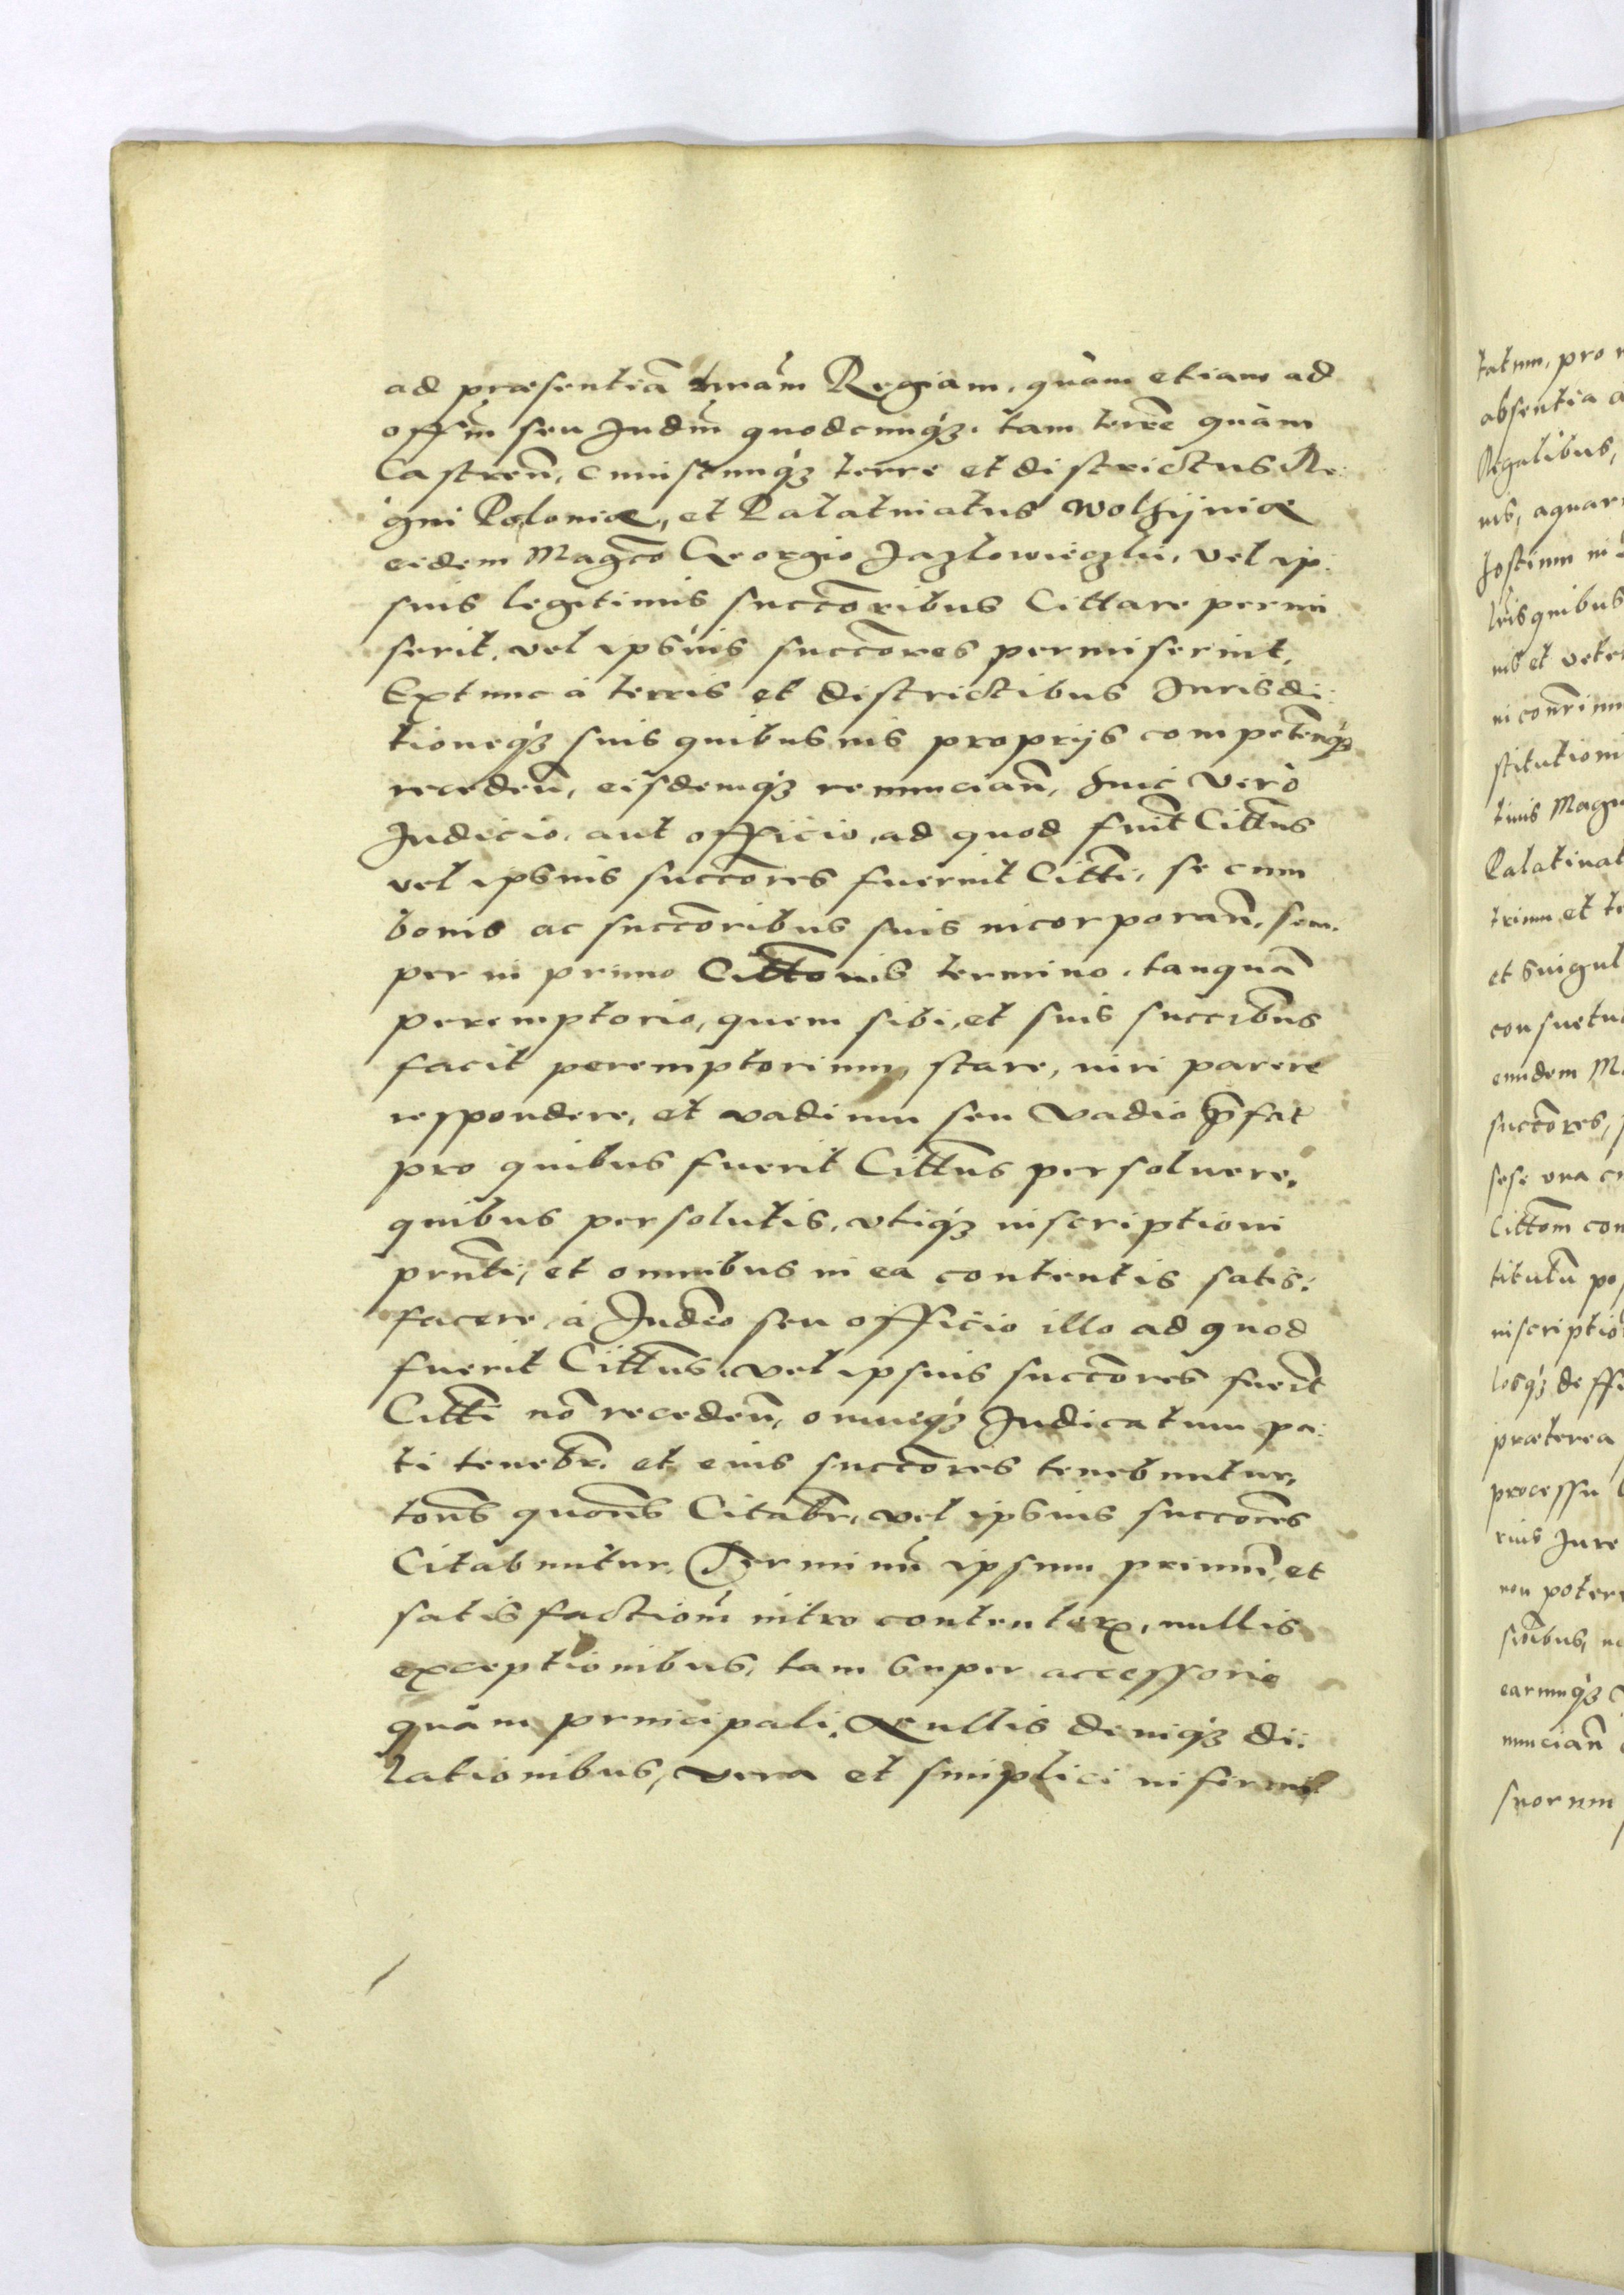 ad præsentiã nrãm Regiam, quàm etiam ad
offm̃ seu Judm̃ quodcunq́ȝ, tam terrẽ quàm
Castreñ, cuiuscunq́ȝ terre et districtus Re:
gni Poloniæ, et Palatinatus Wolhijniæ
eidem Magco Georgio Jazlowieczki, vel ip:
suis legitimis succoribus Cittare permi
serit, vel ipsius succores permiserint,
Extunc à terris et districtibus Jurisdi:
tioneq́ȝ suis quibusuis proprijs competenq́ȝ
recedeñ, eisdemq́ȝ renuncian̄, huic verò
Judicio, aut officio, ad quod fuit Cittus
vel ipsius succores fuerint Citti, se cum
bonis ac succoribus suis incorporan̄, sem:
per in primo Cittonis termino, tanquã
peremptorio, quem sibi, et suis succribus
facit peremptorium, stare, iuri parere
respondere, et vadium seu vadio p̄fat
pro quibus fuerit Cittus persoluere,
quibus persolutis, vtiq́ȝ inscriptioni
prnti, et omnibus in ea contentis satis:
facere, à Judeo seu officio illo ad quod
fuerit Cittus, vel ipsius succores fuerit
Citti nõ recedeñ, omneq́ȝ Judicatum pa:
ti tenebr, et eius succores tenebuntur,
tons quons Citabr, vel ipsius succores
Citabuntur, Terminũ ipsum primũ, et
satisfactiom̃ intro contentarȝ, nullis
exceptionibus, tam super accessorio
quàm principali, Nullis deniq́ȝ di:
lationibus, vera et simplici infirmit

tatum, pro
absentia
Regalibus,
nis, aquar
hostium in
tris quibus
nis et vete
ni conri
stitutioni
tiuis Magn
Palatinat
trium et te
et singul
consuetu
eiusdem Ma
succores,
sese vna cu
Cittom con
titutũ po
inscriptio
losq́ȝ deffi
præterea
processu
rius Jure
non poter
sionibus,
earumq́ȝ
nuncian̄
suorum